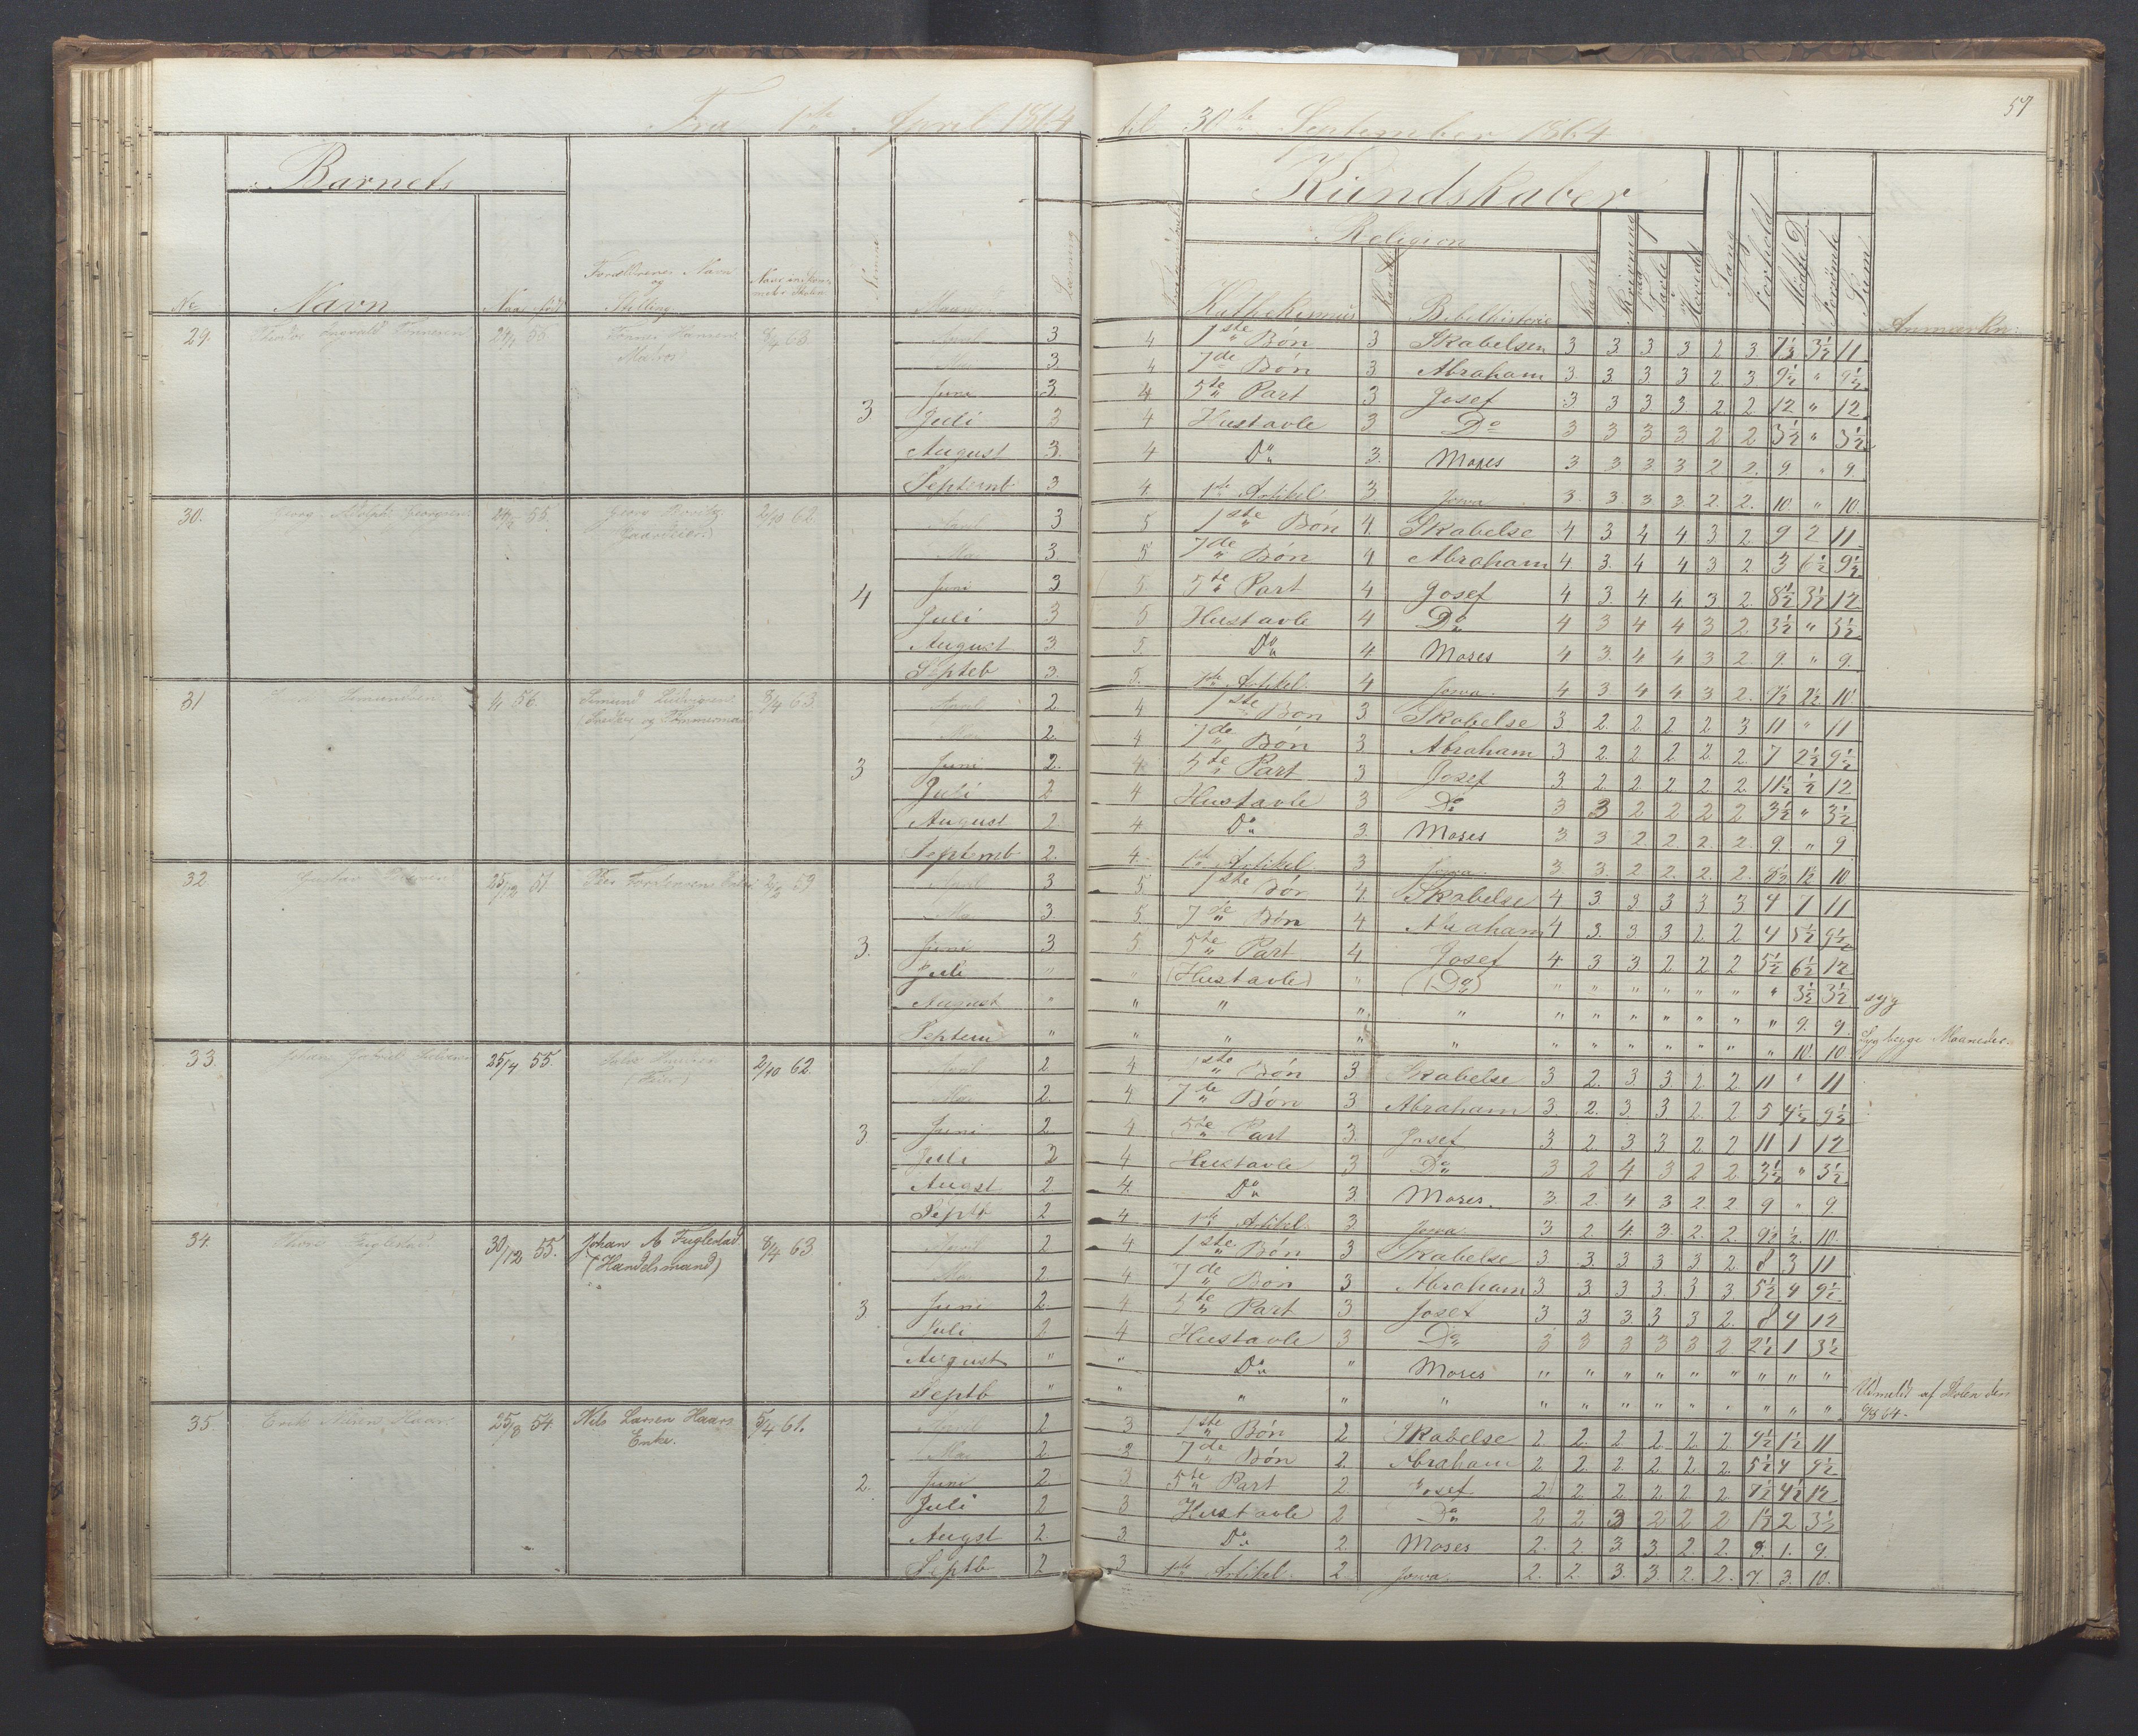 57
Fra 1ste April 1864 til 30te September 1864
Barnets
Kundskaber
Religion
No Navn Naar født Forældrenes Navn og Stilling Maaned Læsning Kathekismus Karakt Bibelhistorie Karakt Sang Forhold Sum Anmærkn:
29. Tønnesen 55 Tønnes Hansen Matros 8/4 63 3
April 3 4 1ste Bøn 3 Skabelsen 3 3 3 3 2 3 7½ 3½ 11
Mai 3 4 7de Bøn 3 Abraham 3 3 3 3 2 3 9½ " 9½
Juni 3 4 5te Part 3 Josef 3 3 3 3 2 2 12 " 12
Juli 3 4 Hustavle 3 Do 3 3 3 3 2 2 3½ " 3½
August 3 4 Do 3 Moses 3 3 3 3 2 2 9 " 9
Septemb 3 4 1ste Artikel 3 3 3 3 3 2 2 10 " 10
30. Georg 55 Georg 2/10 62 4
April 3 5 1ste Bøn 4 Skabelse 4 3 4 4 3 2 9 2 11
Mai 3 5 7de Bøn 4 Abraham 4 3 4 4 3 2 3 6½ 9½
Juni 3 5 5te Part 4 Josef 4 3 4 4 3 2 8½ 3½ 12
Juli 3 5 Hustavle 4 Do 4 3 4 4 3 2 3½ " 3½
August 3 5 Do 4 Moses 4 3 4 4 3 2 9 " 9
Septeb 3 5 1ste Artikel 4 4 3 4 4 3 2 7½ 2½ 10
31 Simundsen 56 Simund Ludvigsen (Snedker og Tømmermand) 8/4 63 3
April 2 4 1ste Bøn 3 Skabelse 3 2 2 2 2 3 11 " 11
Mai 2 4 7de Bøn 3 Abraham 3 2 2 2 2 2 7 2½ 9½
Juni 2 4 5te Part 3 Josef 3 2 2 2 2 2 11½ ½ 12
Juli 2 4 Hustavle 3 Do 3 3 2 2 2 2 3½ " 3½
August 2 4 Do 3 Moses 3 3 2 2 2 2 9 " 9
Septemb 2 4 1ste Artikel 3 3 3 2 2 2 2 8½ 1½ 10
32 Gustav 25/12 51 3
April 3 5 1ste Bøn 4 Skabelse 4 3 3 3 3 3 4 7 11
Mai 3 5 7de Bøn 4 Abraham 4 3 3 3 2 2 4 5½ 9½
Juni 3 5 5te Part 4 Josef 4 3 3 2 2 2 5½ 6½ 12
Juli " " (Hustavle) " (Do) " " " " " " " 3½ 3½ syg
August " " " " " " " " " " " " 9 9
Septem " " " " " " " " " " " " 10 10 Syg begge Maaneder
33. Johan Gabriel 25/4 55 2/10 62 3
April 2 4 1ste Bøn 3 Skabelse 3 2 3 3 2 2 11 " 11
Mai 2 4 7de Bøn 3 Abraham 3 2 3 3 2 2 5 4½ 9½
Juni 2 4 5te Part 3 Josef 3 2 3 3 2 2 11 1 12
Juli 2 4 Hustavle 3 Do 3 2 4 3 2 2 3½ " 3½
Augst 2 4 Do 3 Moses 3 2 4 3 2 2 9 " 9
Septb 2 4 1ste Artikel 3 3 2 4 3 2 2 9½ ½ 10
34. Fuglestad 30/12 53 Johan A Fuglestad (Handelsmand) 8/4 63 3
April 2 4 1ste Bøn 3 Skabelse 3 3 3 3 3 2 8 3 11
Mai 2 4 7de Bøn 3 Abraham 3 3 3 3 3 3 5½ 4 9½
Juni 2 4 5te Part 3 Josef 3 3 3 3 3 2 8 4 12
Juli 2 4 Hustavle 3 Do 3 3 3 3 3 2 2½ 1 3½
August " " Do " Moses " " " " " " " " "
Septb " " " " " " " " " " " " " " Udmeldt af Skolen den 9/8 64.
35. Nilsen Haar 25/8 54 Nils Larsen Haars Enke. 5/4 61. 2
April 2 3 1ste Bøn 2 Skabelse 2 2 2 2 2 2 9½ 1½ 11
Mai 2 2 7de Bøn 2 Abraham 2 2 2 2 2 2 5½ 4 9½
Juni 2 3 5te Part 2 Josef 2 2 2 2 2 2 7½ 4½ 12
Juli 2 3 Hustavle 2 Do 2 2 3 2 2 2 1½ 2 3½
Augst 2 3 Do 2 Moses 2 2 3 3 2 2 8 1 9
Septb 2 3 1ste Artikel 2 2 2 3 3 2 2 7 3 10